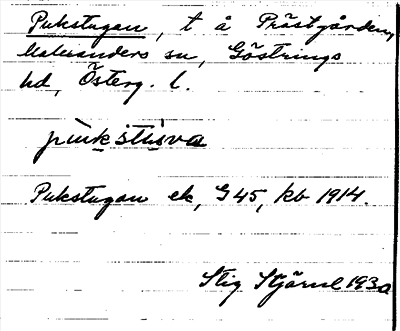 Pukstugan, t å Prästgården,
Kaleanders sn, Göstrings
hd, Österg. l.
Pukstugan ek, G45, kb 1914.
Stig Stjärne 1930